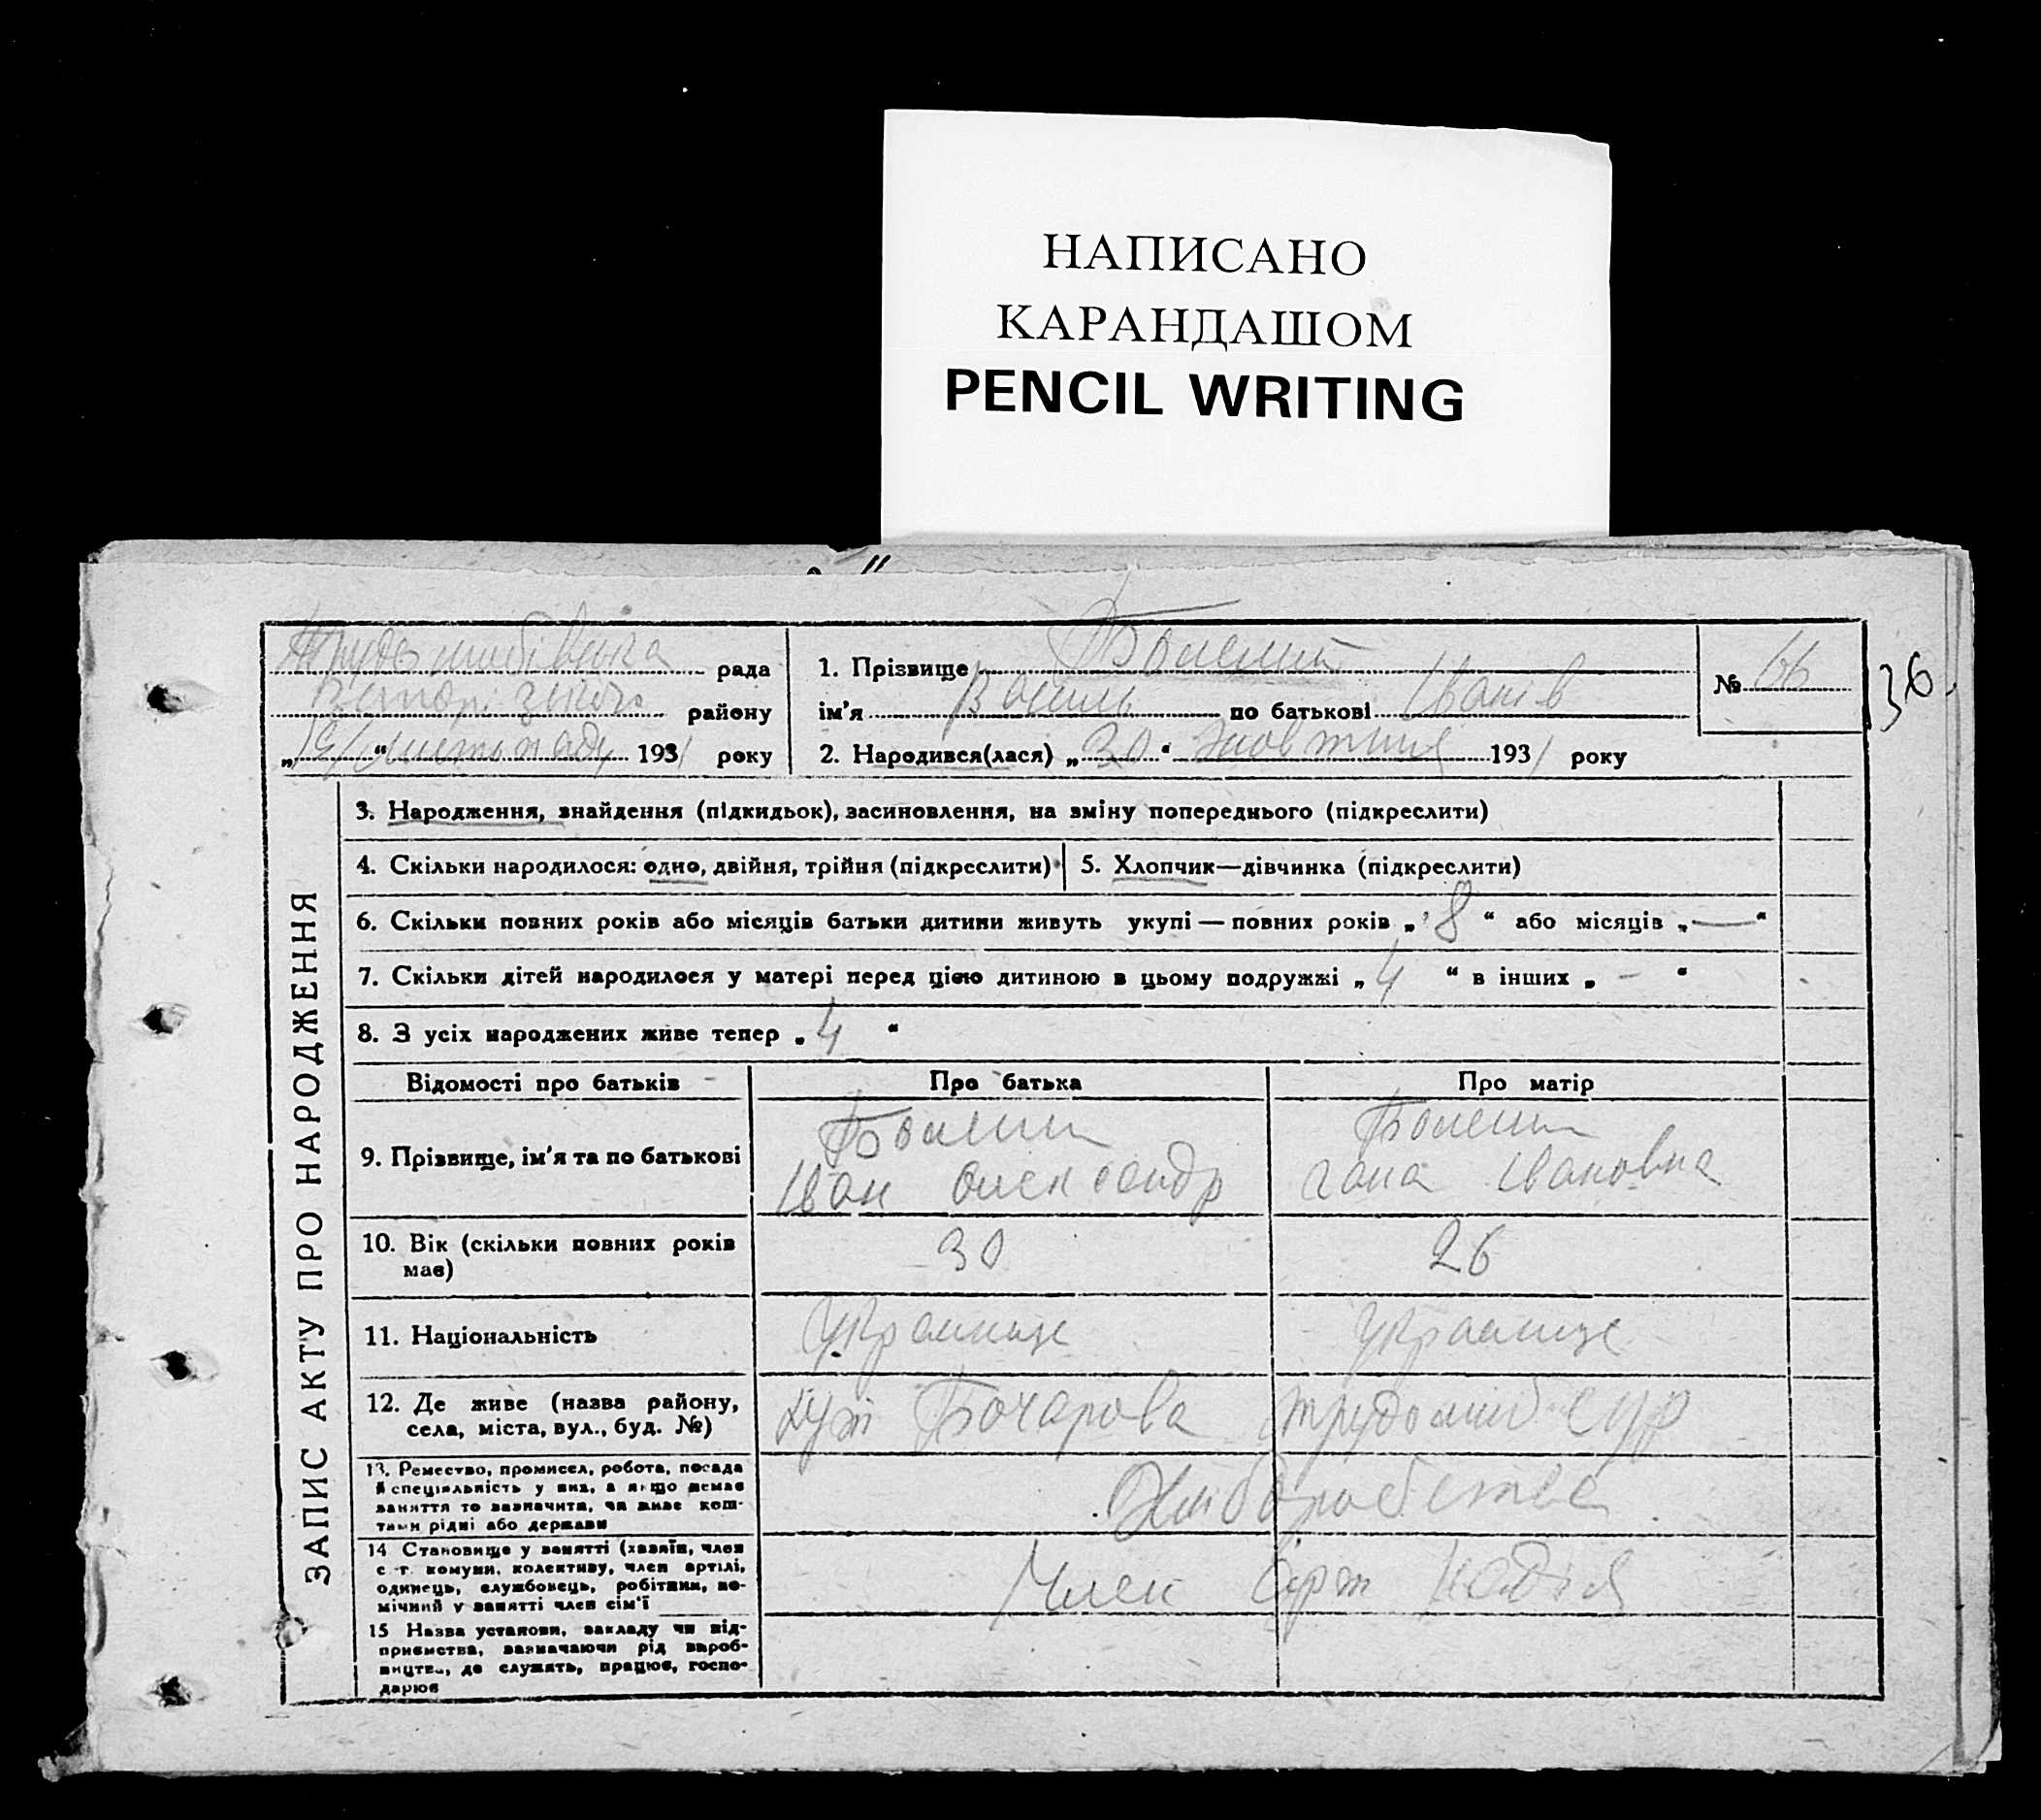 НАПИСАНО
КАРАНДАШОМ
PENCIL WRITING
рада
району
" листопаду 1931 року
1. Прізвище
ім'я Василь по батькові Іванів
2. Народився(лася) „30" жовтня 1931 року
№ 66
36.
ЗАПИС АКТУ ПРО НАРОДЖЕННЯ
3. Народження, знайдення (підкидьок), засиновлення, на зміну попереднього (підкреслити)
4. Скільки народилося: одно, двійня, трійня (підкреслити)
5. Хлопчик—дівчинка (підкреслити)
6. Скільки повних років або місяців батьки дитини живуть укупі — повних років „8" або місяців „—"
7. Скільки дітей народилося у матері перед цією дитиною в цьому подружжі „4" в інших „-"
8. З усіх народжених живе тепер „4"
Відомості про батьків
Про батька
Про матір
9. Прізвище, ім'я та по батькові
Іван Олександр
Гана Івановна
10. Вік (скільки повних років
має)
30
26
11. Національність
12. Де живе (назва району,
села, міста, вул., буд. №)
хут Бочарова
13. Ремество, промисел, робота, посада
й спеціяльність у них, а якщо немає
заняття то зазначити, чи живе кош-
тами рідні або держави
14 Становище у занятті (хазяїн, член
с.-г. комуни, колективу, член артілі,
одинець, службовець, робітник, по-
мічний у занятті член сім'ї
Член Арт Надія
15 Назва установи, закладу чи під-
приємства, зазначаючи рід вироб-
ництва, де служить, працює, госпо-
дарює